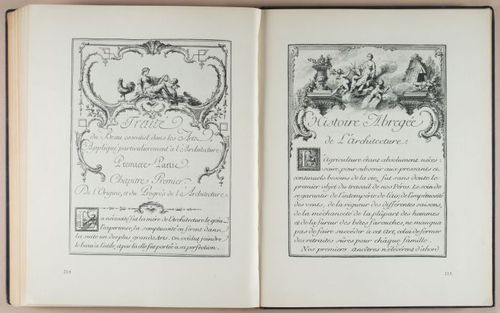 Traité
du Beau essentiel dans les Arts
Appliqué particulierement à l'Architecture
Premiere Partie
Chapitre Premier
De l'Origine, et du Progrès de l'Architecture
La nécessité fut la mere de l'Architecture le génie
la somptuosité en forma dans
la suite un des plus grands Arts. On voulut joindre
le beau à l'utile, a peu elle fut portée à sa perfection.
214
Histoire Abregée
de L'architecture
L'Agriculture étant absolument néces-
saire, pour subvenir aux pressants et
continuels besoins de la vie, fut sans doute le
premier objet du travail de nos Péres. Le soin de
se garantir de l'intempérie de l'air, de l'impétuosité
des vents, de la rigueur des différentes saisons,
de la méchanceté de la plûpart des hommes
et de la fureur des bêtes farouches, ne manqua
pas de faire succéder à cet Art, celui de former
des retraites sûres pour chaque famille.
Nos premiers ancêtres n'élevérent d'abord
215